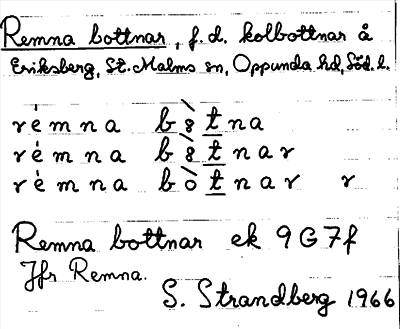 Remna bottnar, f.d. kolbottnar å
Eriksberg, St. Malms sn, Oppunda hd, Söd. l.
rémna b8̀tna
rémna b8̀tnar
rémna bòtnar r
Remna bottnar ek 9G7f
Jfr Remna.
S. Strandberg 1966